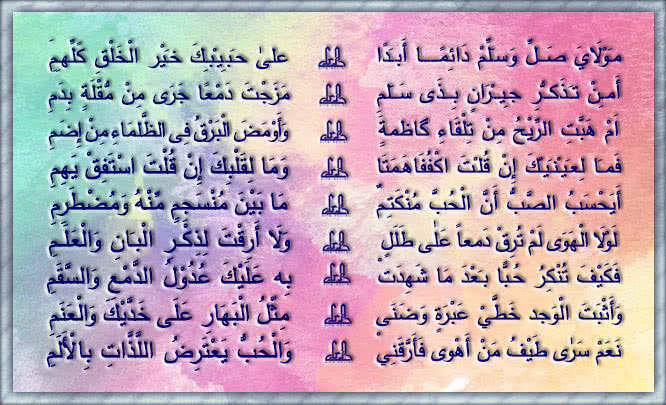 مَوْلَايَ صَلِّ وَسَلِّمْ دَائِمًا أَبَدًا على حَبِيْبِكَ خَيْرِ الْخَلْقِ كُلِّهِمِ
أَمِنْ تَذَكُّرِ جِيْرَانٍ بِذَى سَلَمِ مَزَجْتَ دَمْعًا جَرَى مِنْ مُقْلَةٍ بِدَمِ
اَمْ هَبَّتِ الرِّيْحُ مِنْ تِلْقَاءِ كَاظمَةٍ وَأَوْمَضَ الْبَرْقُ فِى الظَّلْمَاءِ مِنْ إِضَمِ
فَمَا لِعَيْنَيْكَ إِنْ قُلْتَ اكْفُفَا هَمَتَا وَمَا لِقَلْبِكَ إِنْ قُلْتَ اسْتَفِقْ يَهِمِ
أَيَحْسَبُ الصَّبُّ أَنَّ الْحُبَّ مُنْكَتِمٌ مَا بَيْنَ مُنْسَجِمٍ مِنْهُ وَمُضْطَرِمِ
لَوْلَا الْهَوَى لَمْ تُرِقْ دَمعاً عَلٰى طَلَلٍ وَلَا أَرِقْتَ لِذِكْرِ الْبَانِ وَالْعَلَمِ
فَكَيْفَ تُنْكِرُ حُبًّا بَعْدَ مَا شَهِدَتْ بِه عَلَيْكَ عُدُوْلُ الدَّمْعِ وَالسَّقَمِ
وَأَثْبَتَ الْوَجدُ خَطَّيْ عَبْرَةٍ وَضَنًى مِثْلُ الْبَهَارِ عَلَى خَدَّيْكَ وَالْعَنَمِ
نَعَمْ سَرٰى طَيْفُ مَنْ أَهْوى فَأَرَّقَنِيْ وَالْحُبُّ يَعْتَرِضُ اللَّذَّاتِ بِالْأَلَمِ